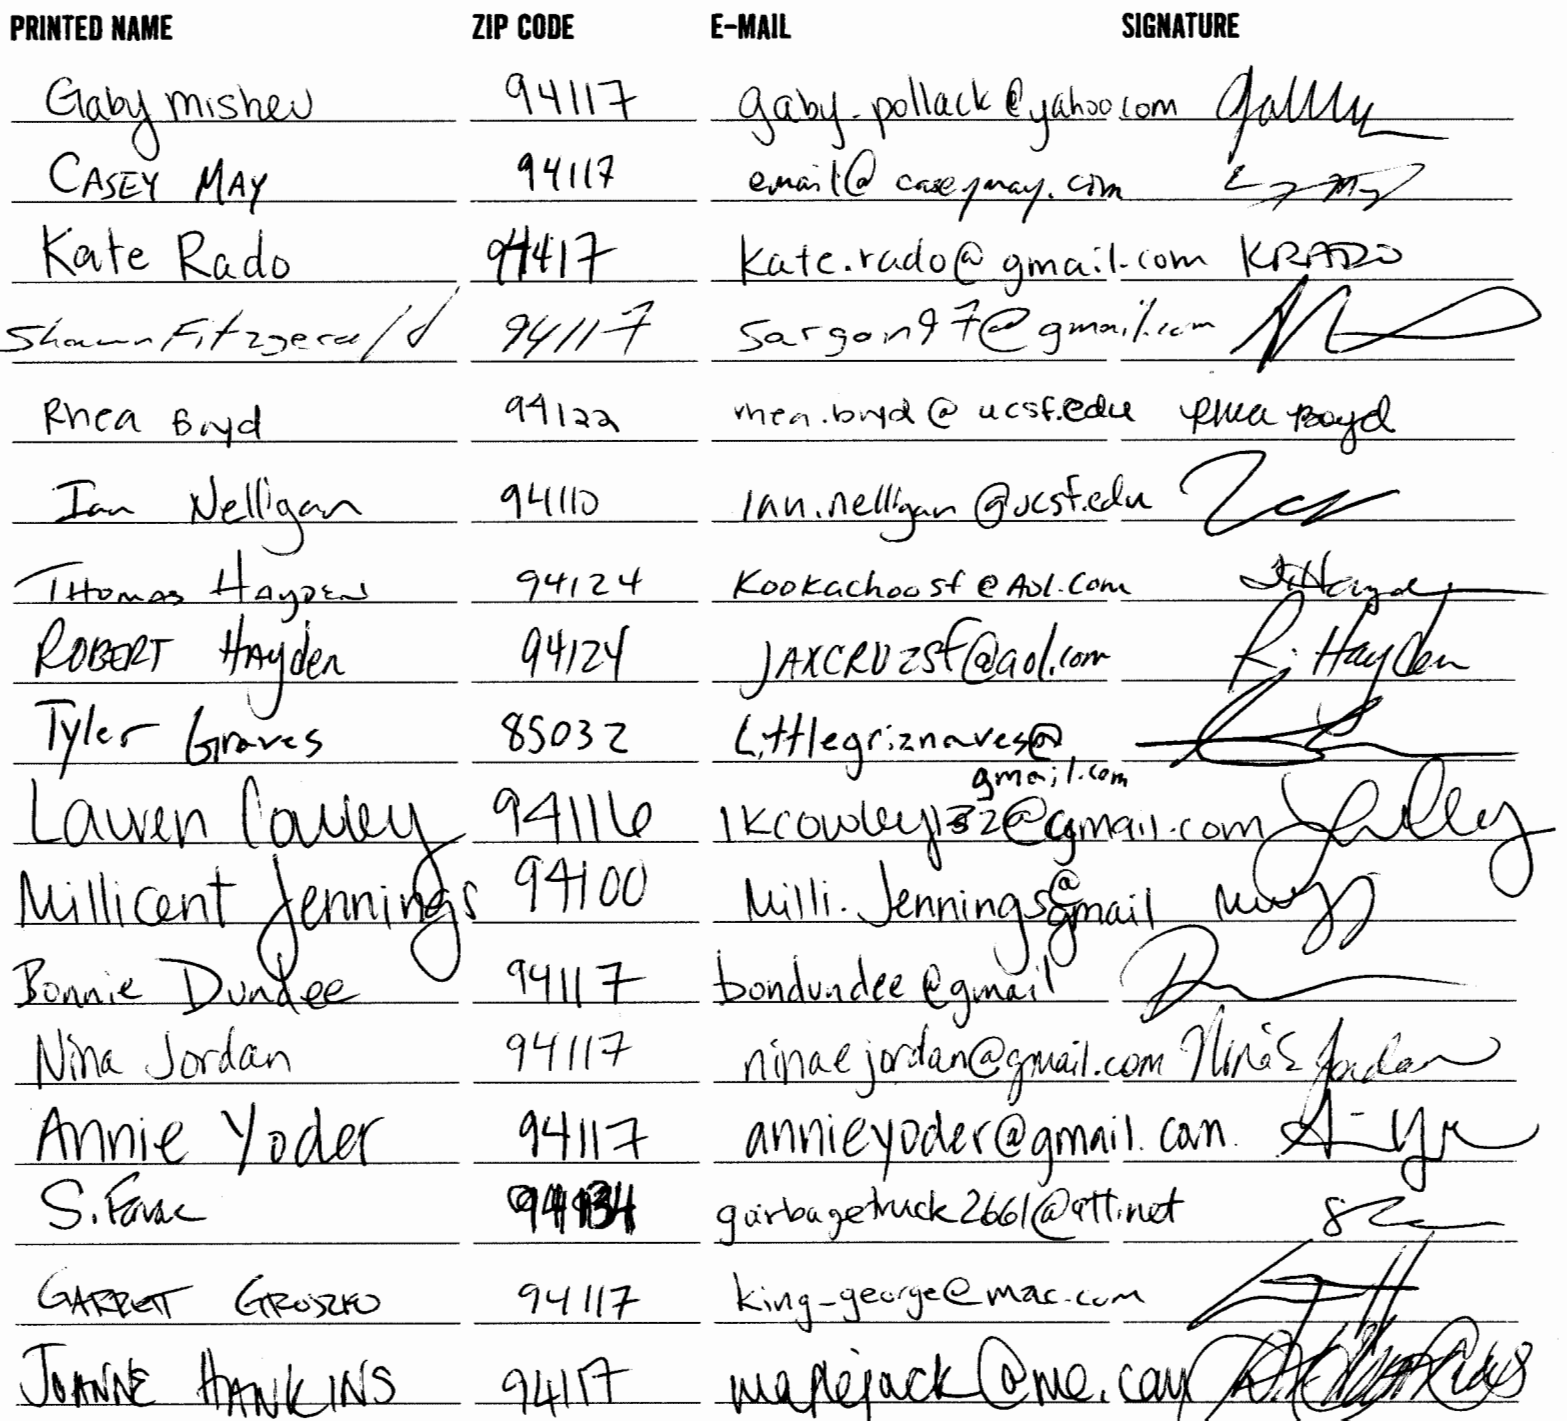 PRINTED NAME ZIP CODE E-MAIL SIGNATURE
Gaby Mishev 94117 gaby_pollack@yahoo.com
CASEY MAY 94117 email@caseymay.com
Kate Rado 94417 kate.rado@gmail.com KRADO
Shawn Fitzgerald 94117 sargon97@gmail.com
Rhea Boyd 94122 rhea.boyd@ucsf.edu Rhea Boyd
Ian Nelligan 94110 ian.nelligan@ucsf.edu
THOMAS HAYDEN 94124 Kookachoosf@Aol.com T. Hayden
ROBERT HAyden 94124 JAXCRUZSf@aol.com R. Hayden
Tyler Graves 85032 Littlegriznaves@
gmail.com
Lauren Cowley 94116 lkcowley132@gmail.com
Millicent Jennings 94100 Milli.Jennings@gmail
Bonnie Dundee 94117 bondundee@gmail
Nina Jordan 94117 ninaejordan@gmail.com Nina E Jordan
Annie Yoder 94117 annieyoder@gmail.com
S. 94134 garbagetruck2661@att.net
GARRETT GROSZKO 94117 king_george@mac.com
JOANNE HANKINS 94117 maplejack@me.com